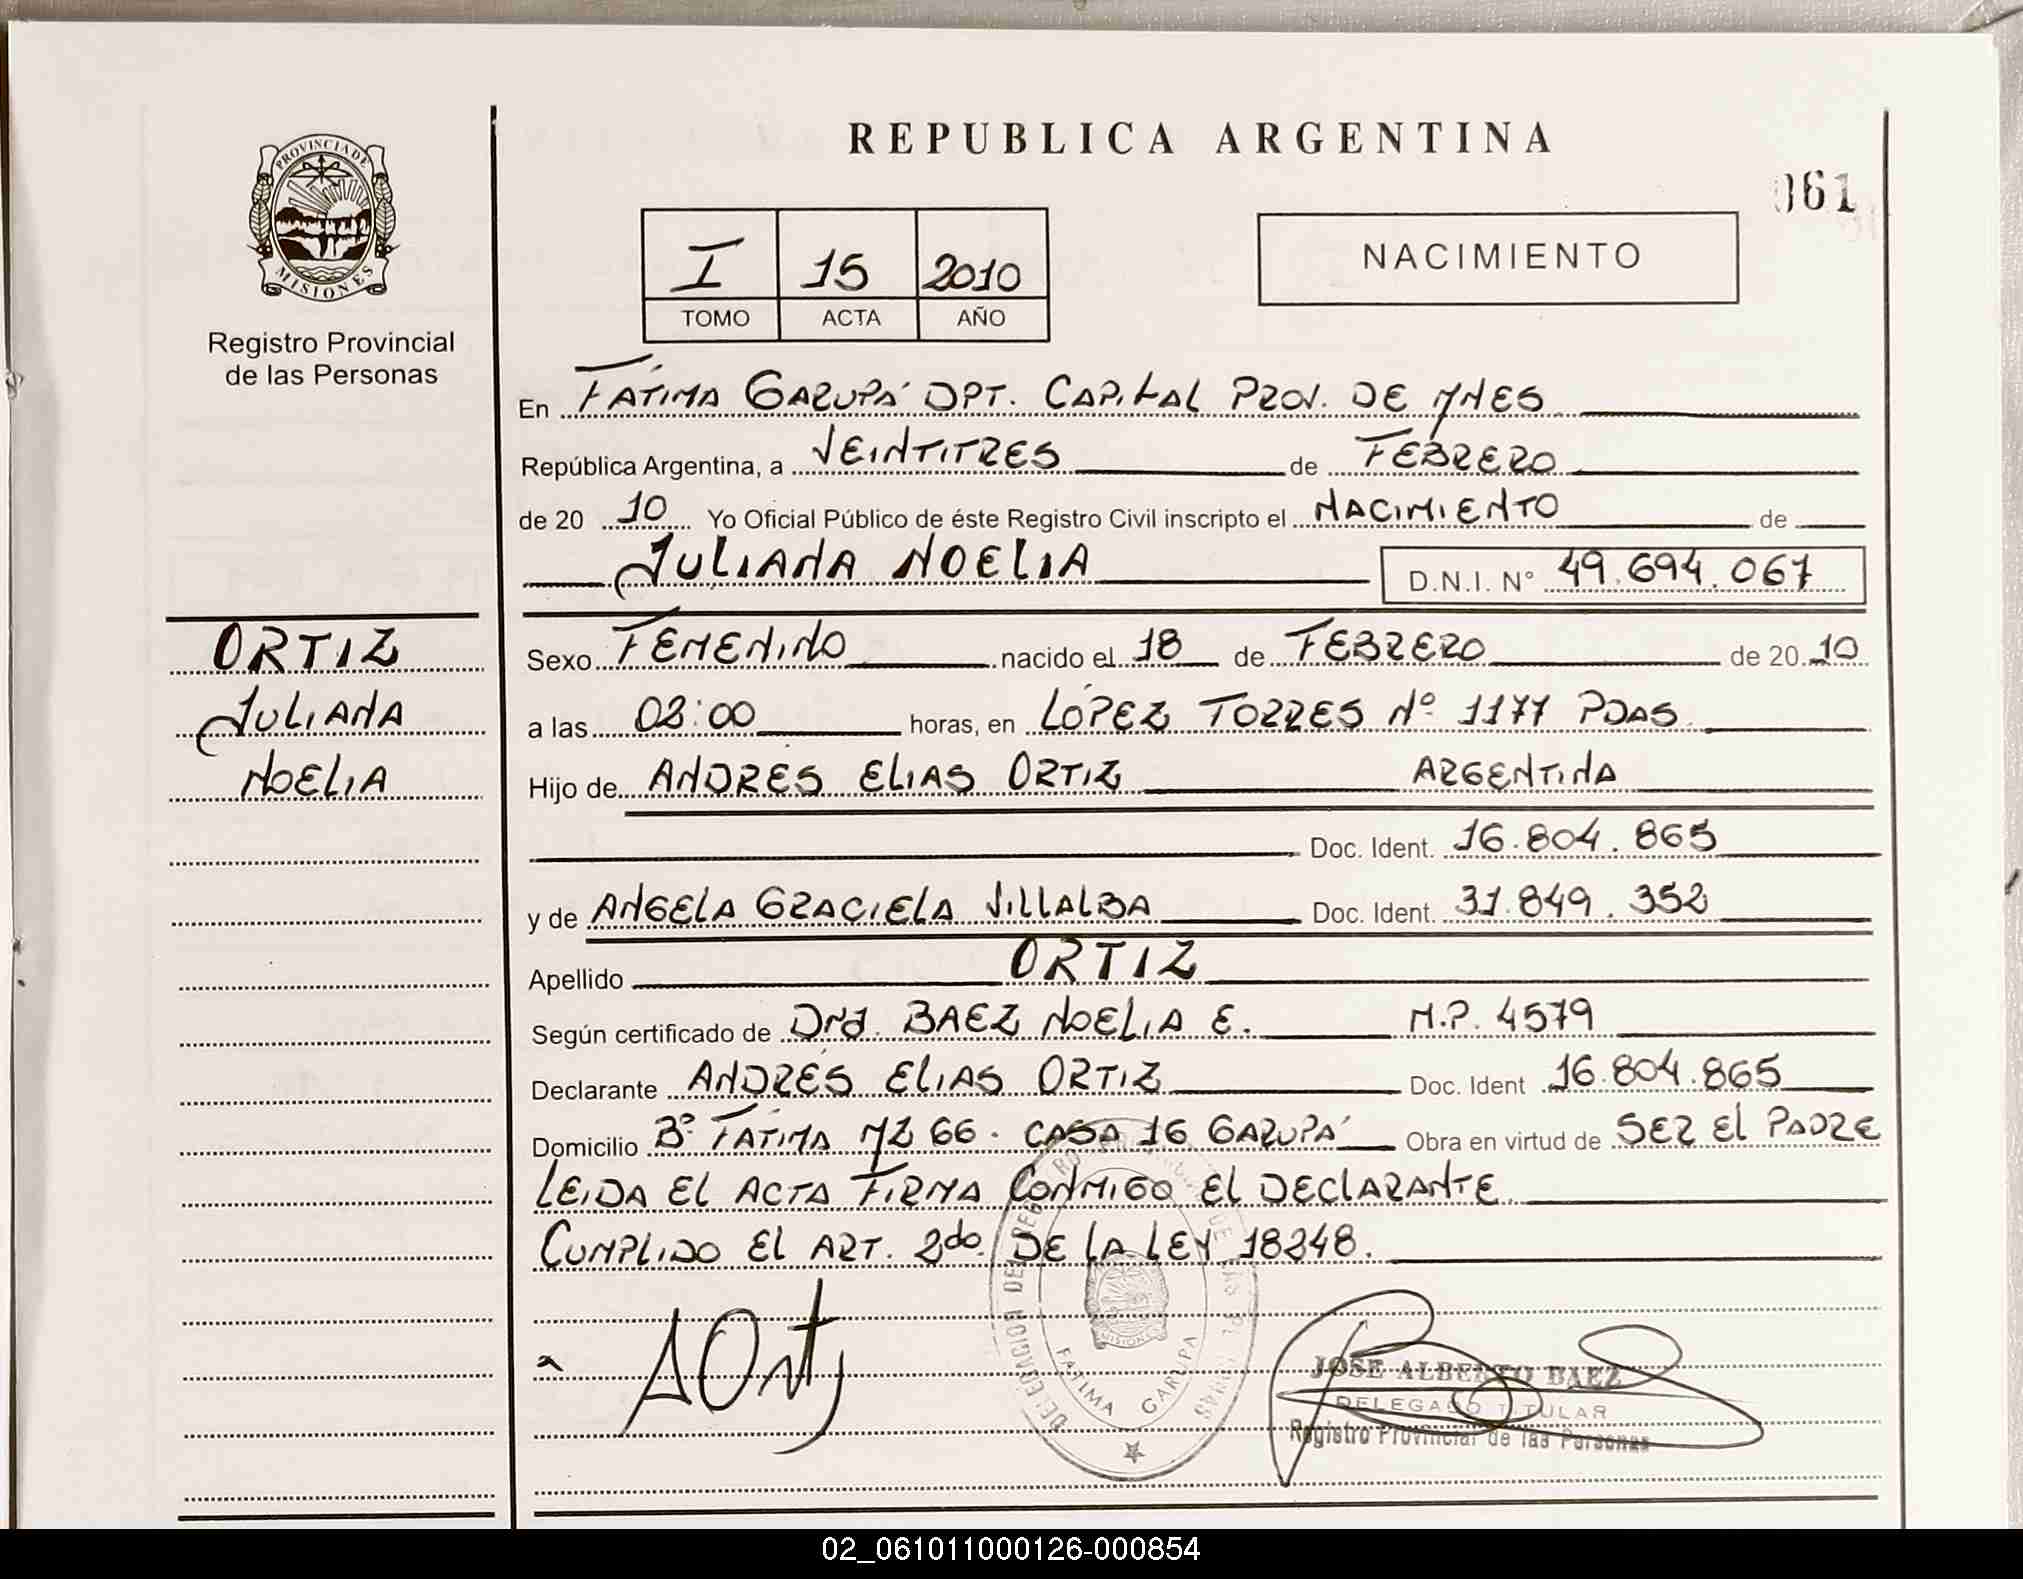 REPUBLICA ARGENTINA
061
PROVINCIA DE
MISIONES
Registro Provincial
de las Personas
I 15 2010
TOMO ACTA AÑO
NACIMIENTO
En FÁTIMA GARUPÁ DPT. CAPITAL PROV. DE MNES
República Argentina, a VEINTITRES de FEBRERO
de 20 10 Yo Oficial Público de éste Registro Civil inscripto el NACIMIENTO de
JULIANA NOELIA D.N.I. N° 49.694.067
ORTIZ
JULIANA
NOELIA
Sexo FEMENINO nacido el 18 de FEBRERO de 20 10
a las 02:00 horas, en LÓPEZ TORRES Nº 1177 PDAS.
Hijo de ANDRES ELIAS ORTIZ ARGENTINA
Doc. Ident. 16.804.865
y de ANGELA GRACIELA VILLALBA Doc. Ident. 31.849.352
Apellido ORTIZ
Según certificado de Dra. BAEZ NOELIA E. M.P. 4579
Declarante ANDRÉS ELIAS ORTIZ Doc. Ident 16.804.865
Domicilio Bº FÁTIMA MZ 66. CASA 16 GARUPÁ Obra en virtud de SER EL PADRE
LEIDA EL ACTA FIRMA CONMIGO EL DECLARANTE
CUMPLIDO EL ART. 2do. DE LA LEY 18248.
MISIONES
FATIMA GARUPA
AOrtiz
JOSE ALBERTO BAEZ
DELEGADO TITULAR
Registro Provincial de las Personas
02_061011000126-000854